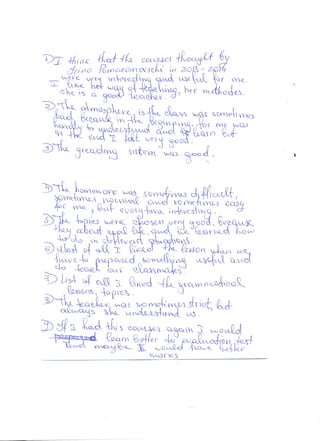 1) I think that the caurses thought by
Irina Pomazanovschi in 2013 - 2014
were very interesting and useful for me.
I like her way of teaching, her methodes.
She is a good teacher.
2) The atmosphere is the class was sometimes
bad, because in the beginning, for my was
hardly to understand and to learn but
in the end I felt very good.
3) The greading sistem was good.
4) The homework was sometimes difficult,
sometimes, normal and sometimes easy
for me, but everytime interesting.
5) The topics were chosen very good, because
they about real life, and we learned how
to do in different situations.
6) Most of all I liked the lesson when we
have to prepared something useful and
to teach our classmates.
7) List of all I liked the grammatical
lessons, topics.
8) The teacher, was sometimes strict, but
always she understand us.
9) If I had this courses again I would
learn better to evaluation test
and maybe I would have better
marks